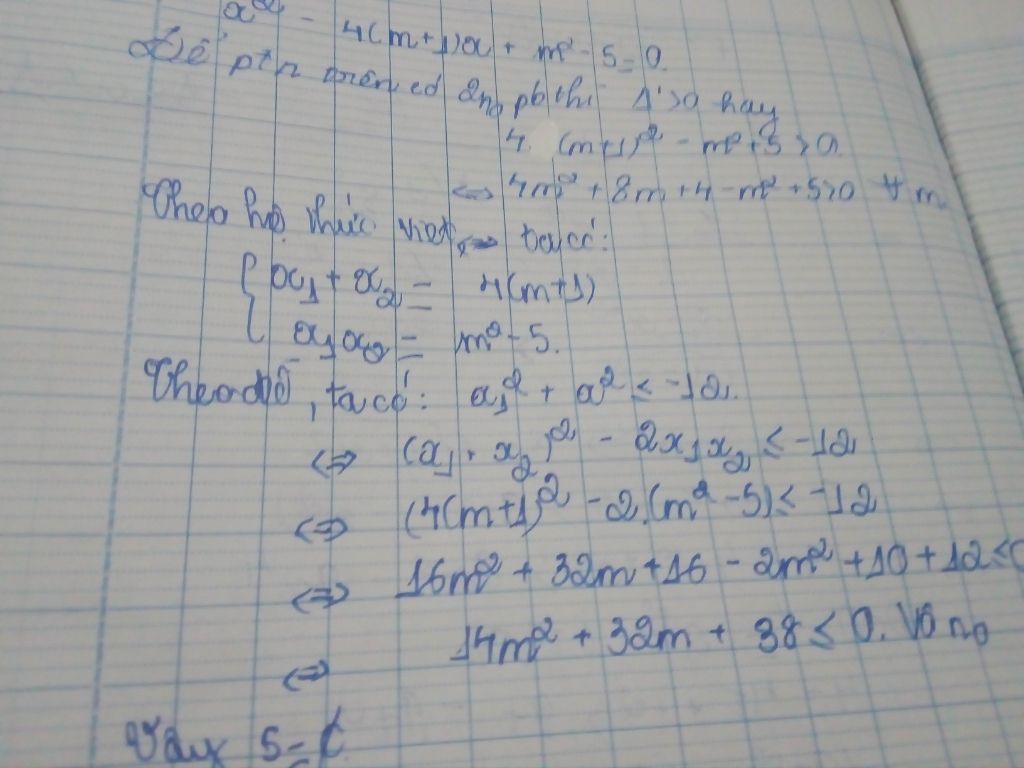 x² - 4(m+1)x + m² - 5 = 0.
Để pt n có 2n₀ pb thì Δ' > 0 hay
4. (m+1)² - m² + 5 > 0.
⇔ 4m² + 8m + 4 - m² + 5 > 0 ∀ m
Theo hệ thức viet, ⇔ ta có:
{ x₁ + x₂ = 4(m+1)
x₁x₂ = m² - 5.
Theo đề, ta có: x₁² + x² ≤ -12.
⇔ (x₁ + x₂)² - 2x₁x₂ ≤ -12
⇔ (4(m+1)² - 2.(m² - 5) ≤ -12
⇔ 16m² + 32m + 16 - 2m² + 10 + 12 ≤ 0
⇔ 14m² + 32m + 38 ≤ 0. Vô n₀
Vậy S =